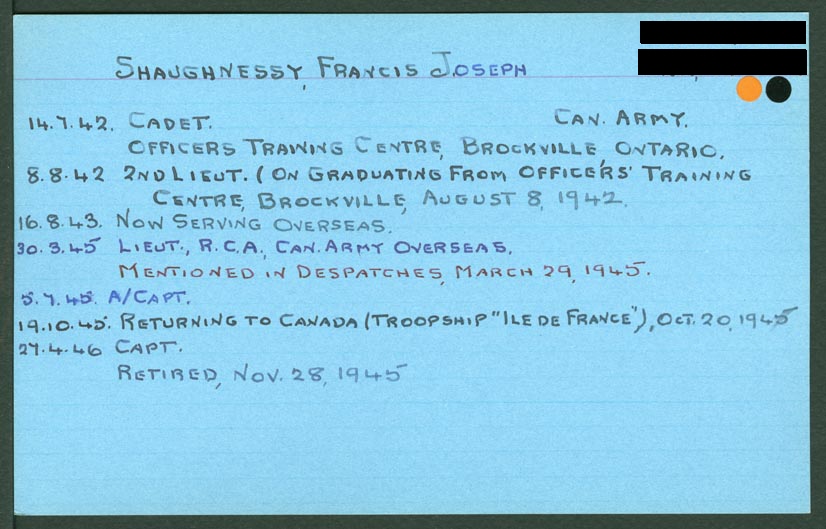 SHAUGHNESSY, FRANCIS JOSEPH
14.7.42. CADET. CAN. ARMY.
OFFICERS TRAINING CENTRE, BROCKVILLE, ONTARIO.
8.8.42 2ND LIEUT. (ON GRADUATING FROM OFFICERS' TRAINING
CENTRE, BROCKVILLE, AUGUST 8, 1942.
16.8.43. NOW SERVING OVERSEAS.
30.3.45 LIEUT., R.C.A., CAN. ARMY OVERSEAS.
MENTIONED IN DESPATCHES, MARCH 29, 1945.
5.7.45. A/CAPT.
19.10.45. RETURNING TO CANADA (TROOPSHIP "ILE DE FRANCE"), OCT. 20, 1945
27.4.46 CAPT.
RETIRED, NOV. 28, 1945